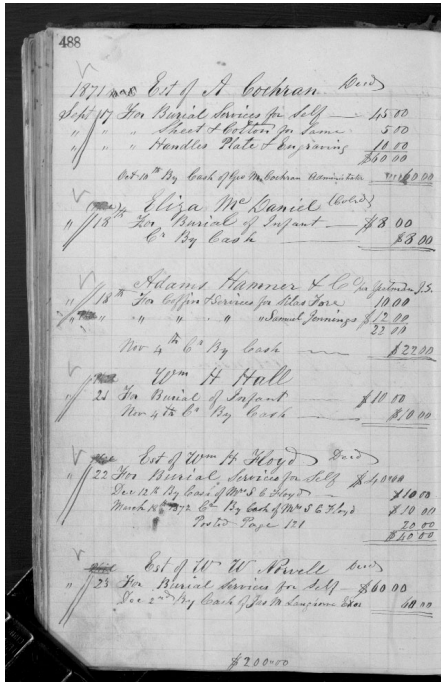 488
1871 Est of A Cochran Decd
Sept 17 For Burial Services for Self — 45.00
" " " Sheet & Cotton for Same 5.00
" " " Handles Plate & Engraving 10.00
$60.00
Oct 10th By Cash of Geo M Cochran Administrator 60.00
Eliza McDaniel (Cold)
" 18th For Burial of Infant — $8.00
Cr By Cash — $8.00
Adams Hanner & C J.S.
" 18th For Coffin & Services for Silas Fore 10.00
" " " " " " Samuel Jennings $12.00
22.00
Nov 4th Cr By Cash — $22.00
Wm H Hall
" 21 For Burial of Infant — $10.00
Nov 4th Cr By Cash — $10.00
Est of Wm H Floyd Decd
" 22 For Burial, services for Self $40.00
Dec 12th By Cash of Mrs S C Floyd — $10.00
March 1872 Cr By Cash of Mrs S C Floyd $10.00
Posted Page 121 20.00
$40.00
Est of W W Norvell Decd
" 23 For Burial Services for Self — $60.00
Dec 2nd By Cash of Jas M Exor 60.00
$200.00